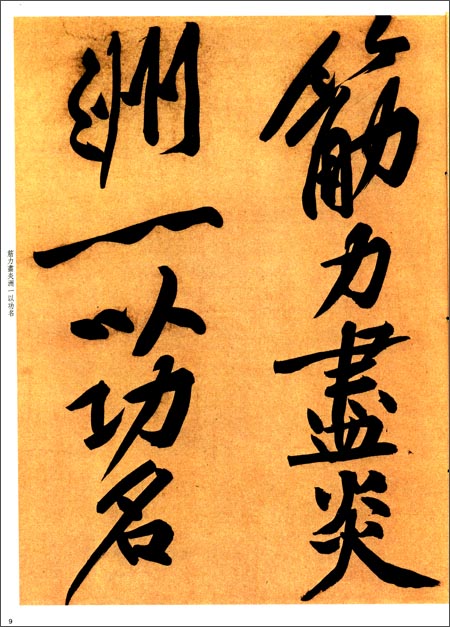 筋力盡炎
洲一以功名
筋力盡炎洲一以功名
9